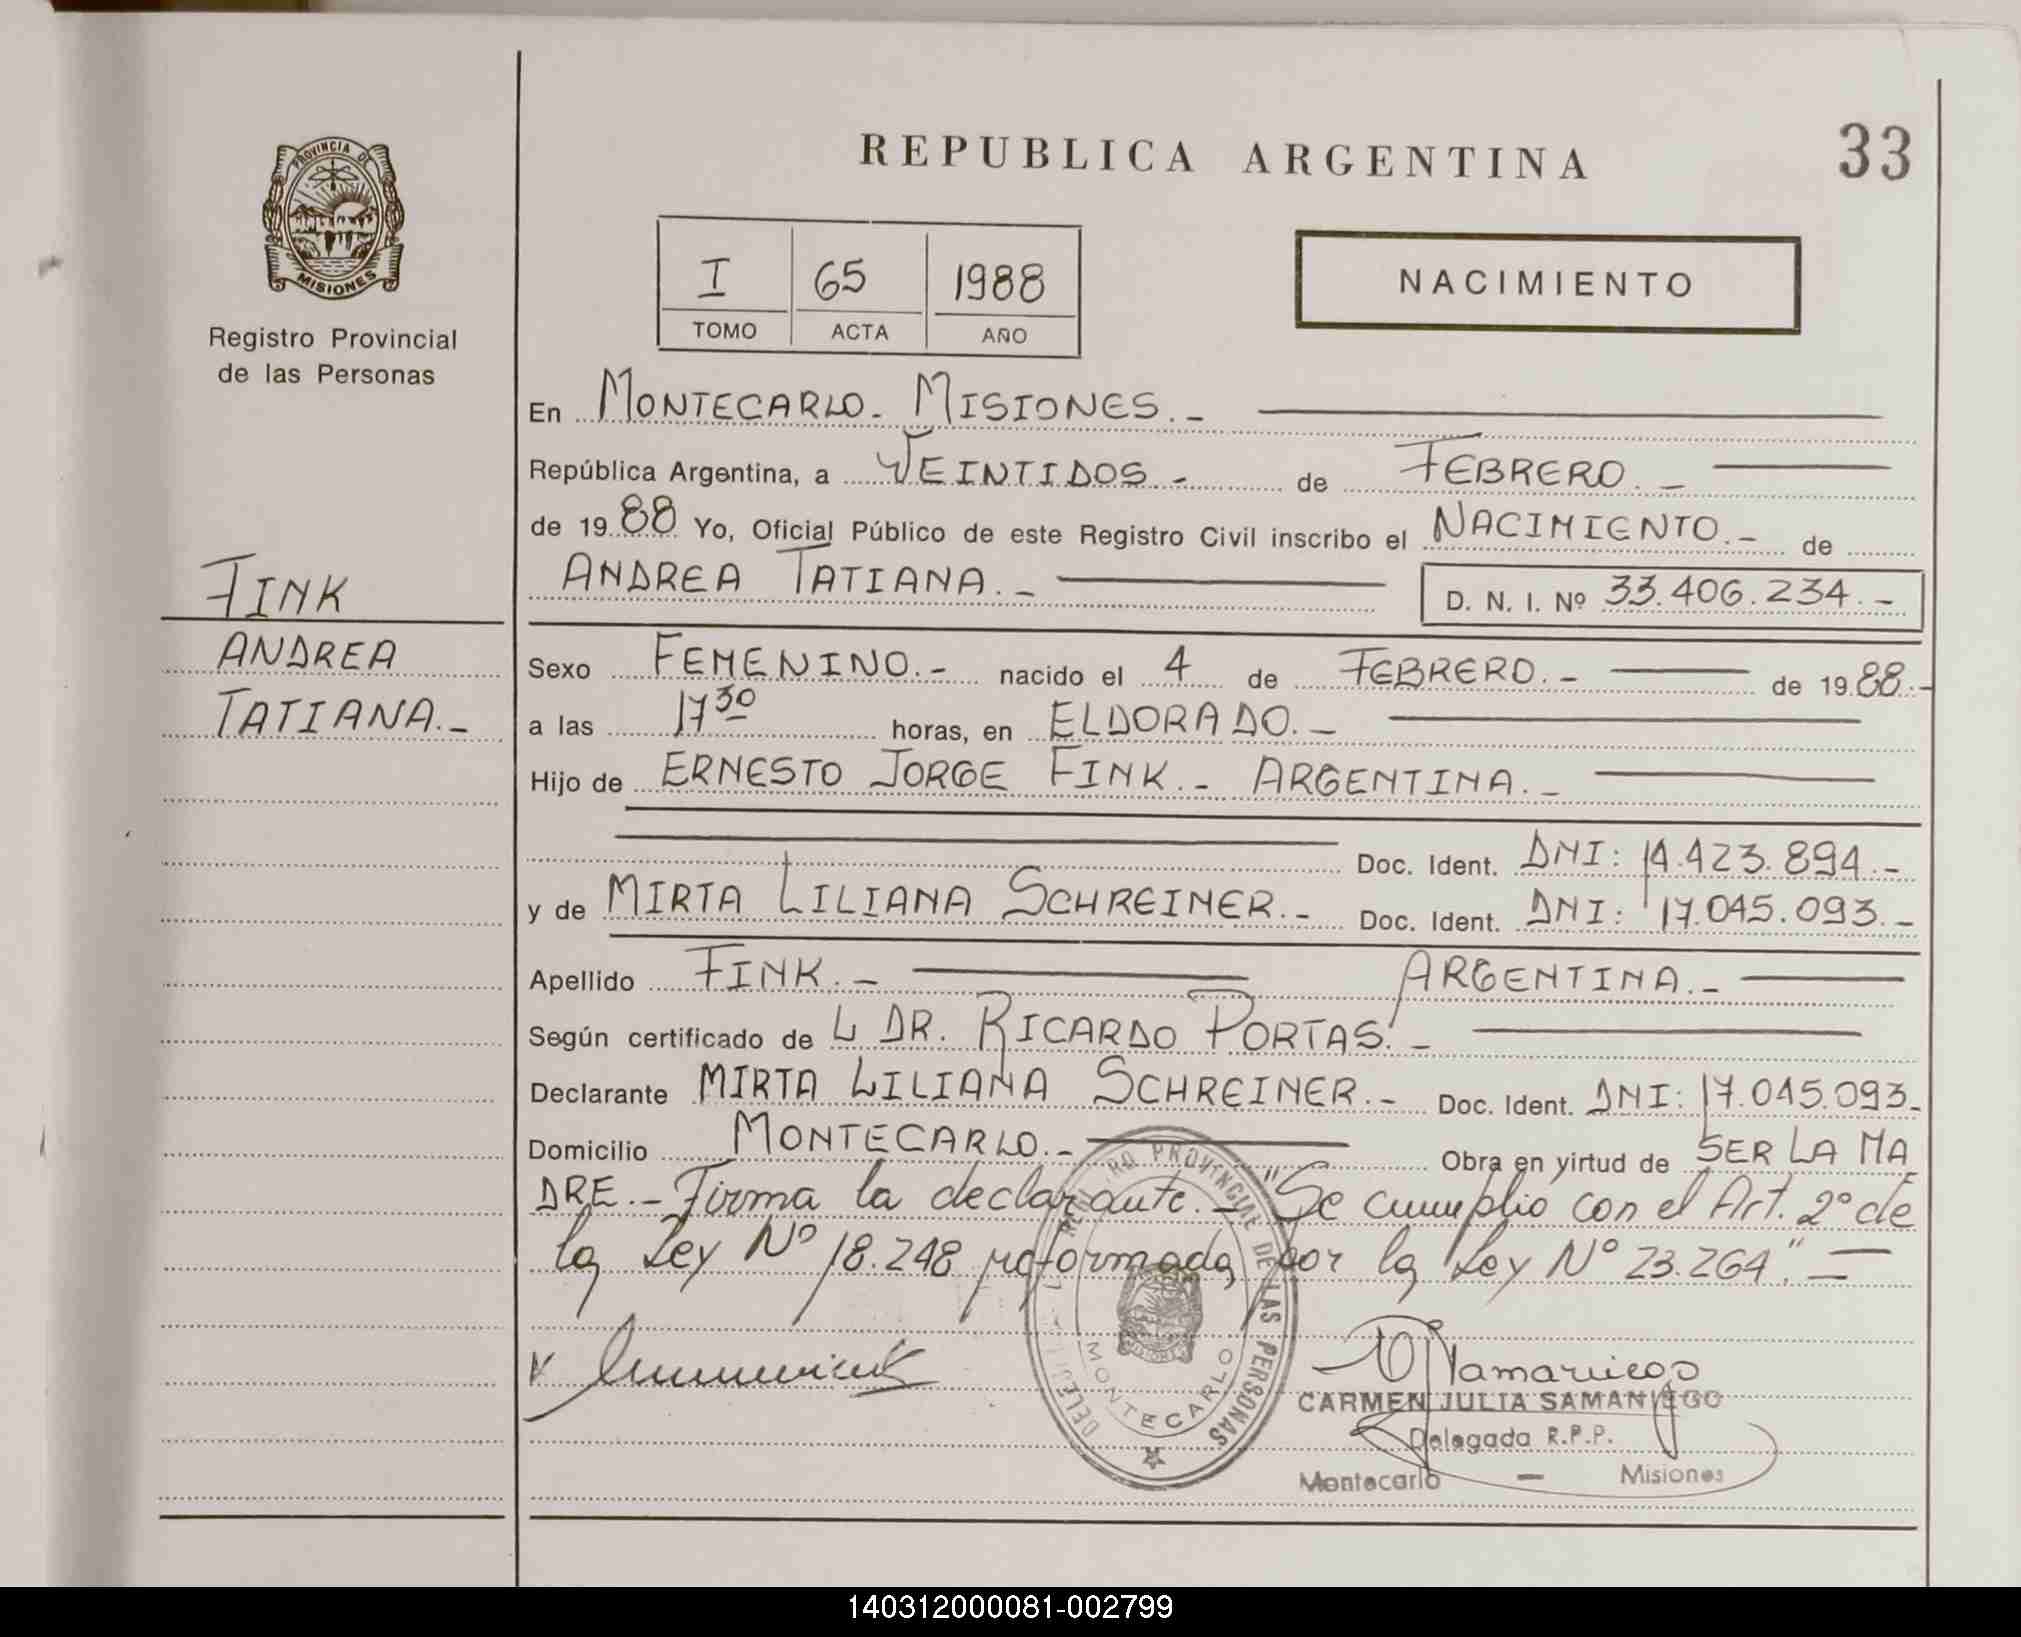 REPUBLICA ARGENTINA
33
PROVINCIA DE
MISIONES
Registro Provincial
de las Personas
I 65 1988
TOMO ACTA AÑO
NACIMIENTO
En MONTECARLO - MISIONES.-
República Argentina, a VEINTIDOS.- de FEBRERO.-
de 1988 Yo, Oficial Público de este Registro Civil inscribo el NACIMIENTO.- de
ANDREA TATIANA.- D. N. I. Nº 33.406.234.-
FINK
ANDREA
TATIANA.-
Sexo FEMENINO.- nacido el 4 de FEBRERO.- de 1988.-
a las 17 30 horas, en ELDORADO.-
Hijo de ERNESTO JORGE FINK.- ARGENTINA.-
Doc. Ident. DNI: 14.423.894.-
y de MIRTA LILIANA SCHREINER.- Doc. Ident. DNI: 17.045.093.-
Apellido FINK.- ARGENTINA.-
Según certificado de L DR. RICARDO PORTAS.-
Declarante MIRTA LILIANA SCHREINER.- Doc. Ident. DNI: 17.045.093.-
Domicilio MONTECARLO.- Obra en virtud de SER LA MA
DRE.- Firma la declarante.- "Se cumplio con el Art. 2º de
la Ley Nº 18.248 reformada por la Ley Nº 23.264".-
PROVINCIAL DE LAS PERSONAS
MONTECARLO
CARMEN JULIA SAMANIEGO
Delegada R.P.P.
Montecarlo - Misiones
140312000081-002799